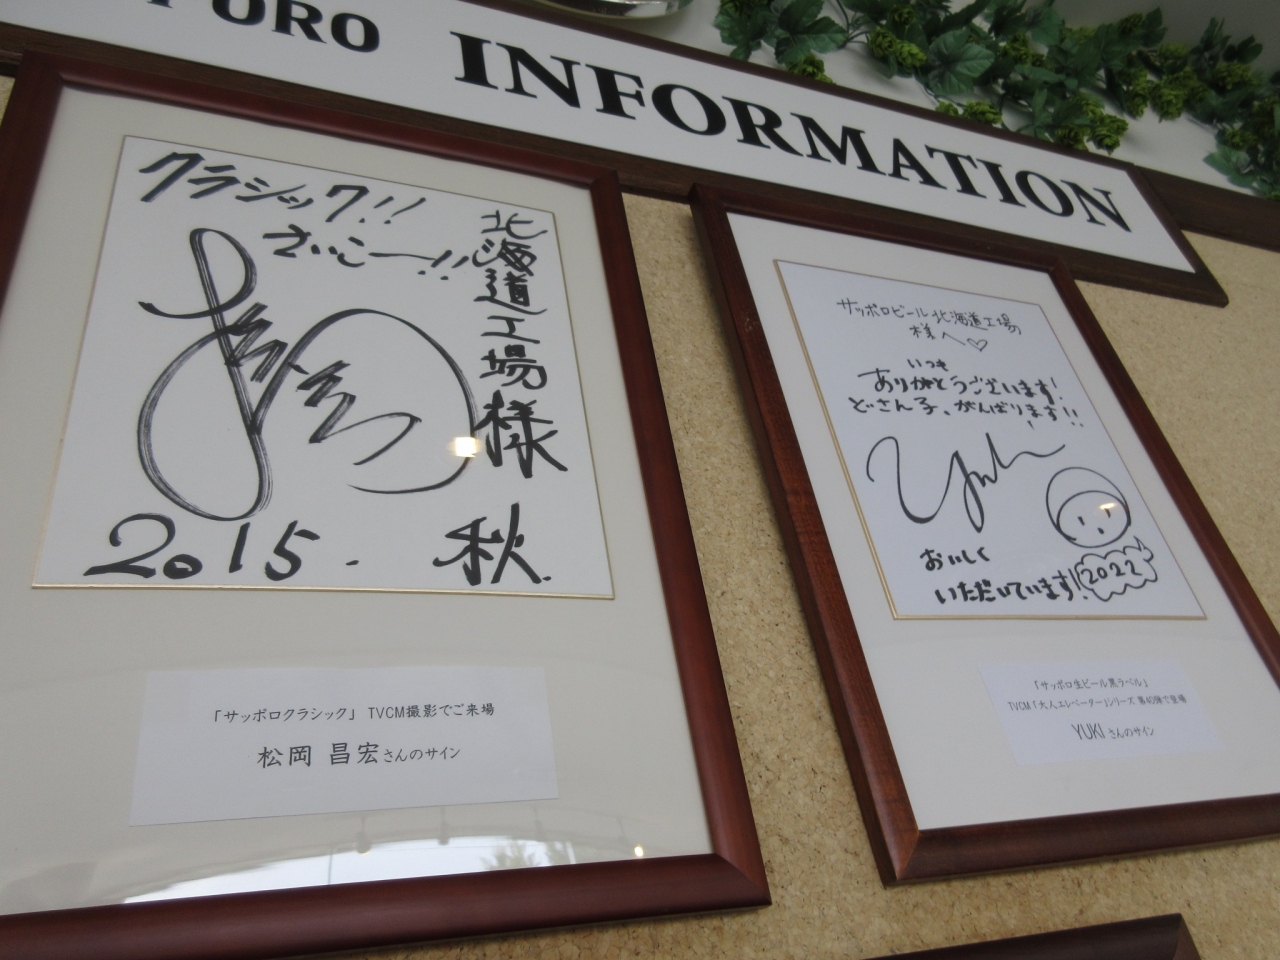 URO INFORMATION
クラシック!!
さいこー!!
北海道工場様
2015. 秋.
「サッポロクラシック」 TVCM撮影でご来場
松岡 昌宏さんのサイン
サッポロビール北海道工場
様へ♡
いつも
ありがとうございます!
どさん子、がんばります!!
Yuki
おいしく
いただいています!
2022
「サッポロ生ビール黒ラベル」
TVCM「大人エレベーター」シリーズ 第40弾で登場
YUKI さんのサイン